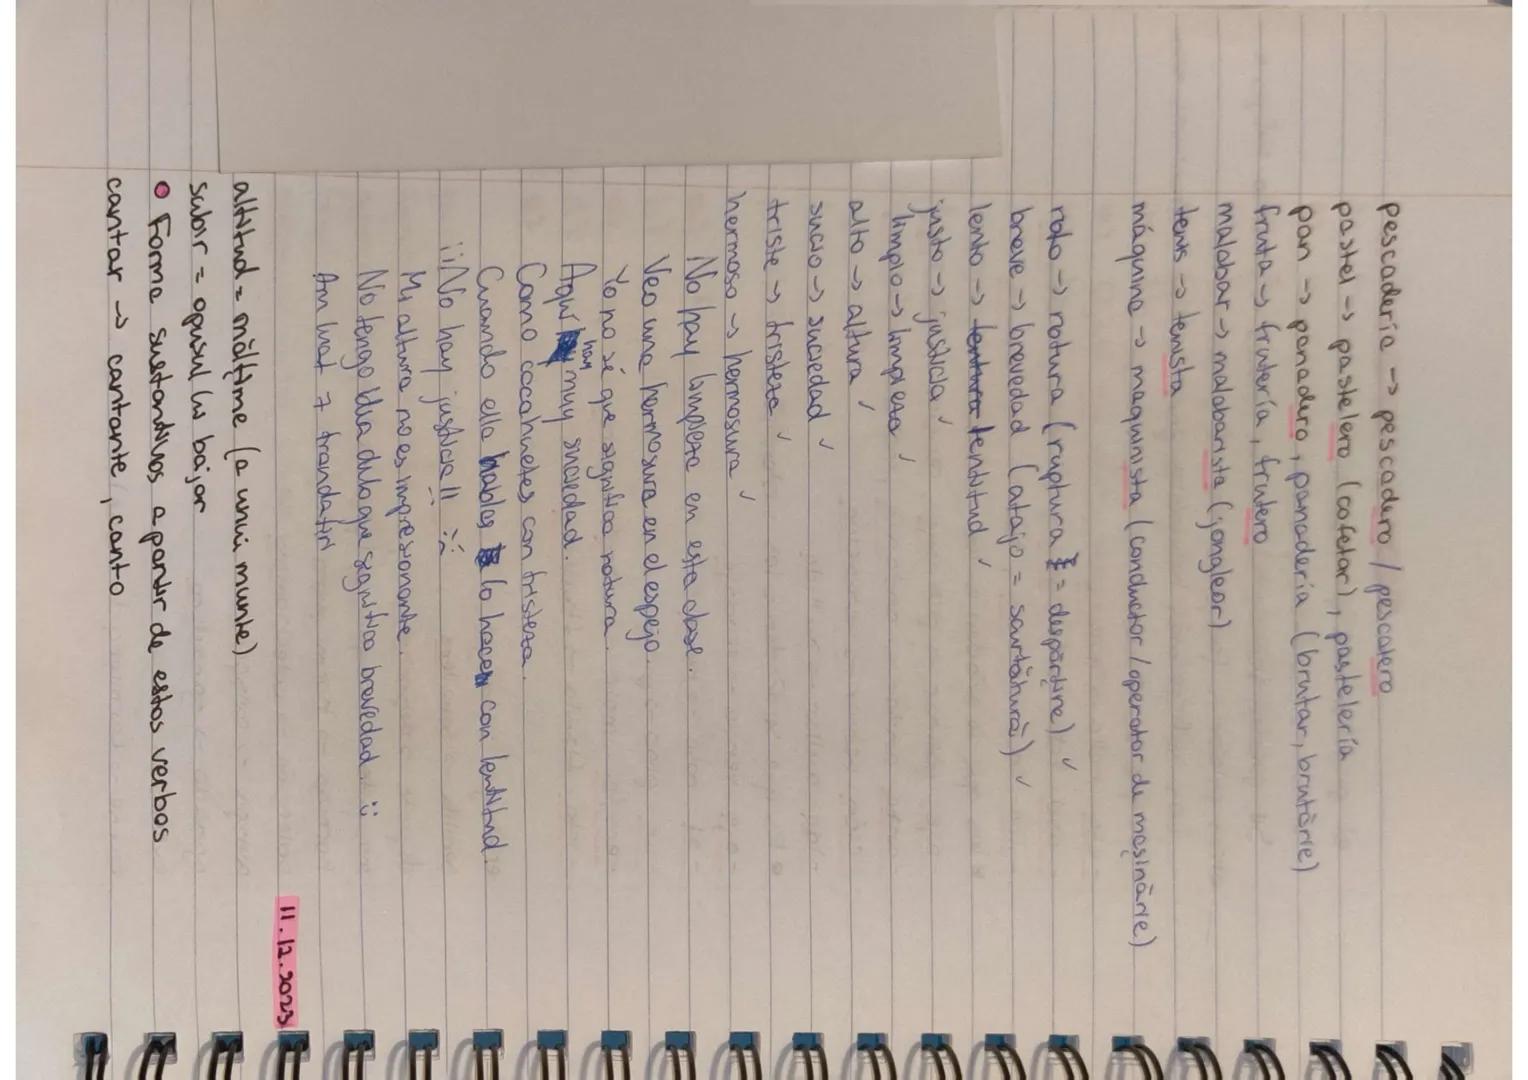 pescadería → pescadero / pescatero
pastel → pastelero (cofetar), pastelería
pan → panadero, panadería (brutar, brutărie)
fruta → frutería, frutero
malabar → malabarista (jongleor)
tenis → tenista
máquina → maquinista (conductor / operator de mașinărie)
roto → rotura (ruptura = despărțire) ✓
breve → brevedad (atajo = scurtătură) ✓
lento → lentura lentitud ✓
justo → justicia ✓
limpio → limpieza ✓
alto → altura ✓
sucio → suciedad ✓
triste → tristeza ✓
hermoso → hermosura ✓
No hay limpieza en esta clase.
Veo una hermosura en el espejo.
Yo no sé que significa rotura.
Aquí hay muy suciedad.
Como cacahuetes con tristeza.
Cuando ella hablas lo hacen con lentitud.
¡¡No hay justicia!! :(
Mi altura no es impresionante.
No tengo idea de lo que significa brevedad. :)
Am luat 7 trandafiri
11.12.2023
altitud = mălțime (a unui munte)
subir = opusul lui bajar
• Forma sustantivos a partir de estos verbos
cantar → cantante, canto